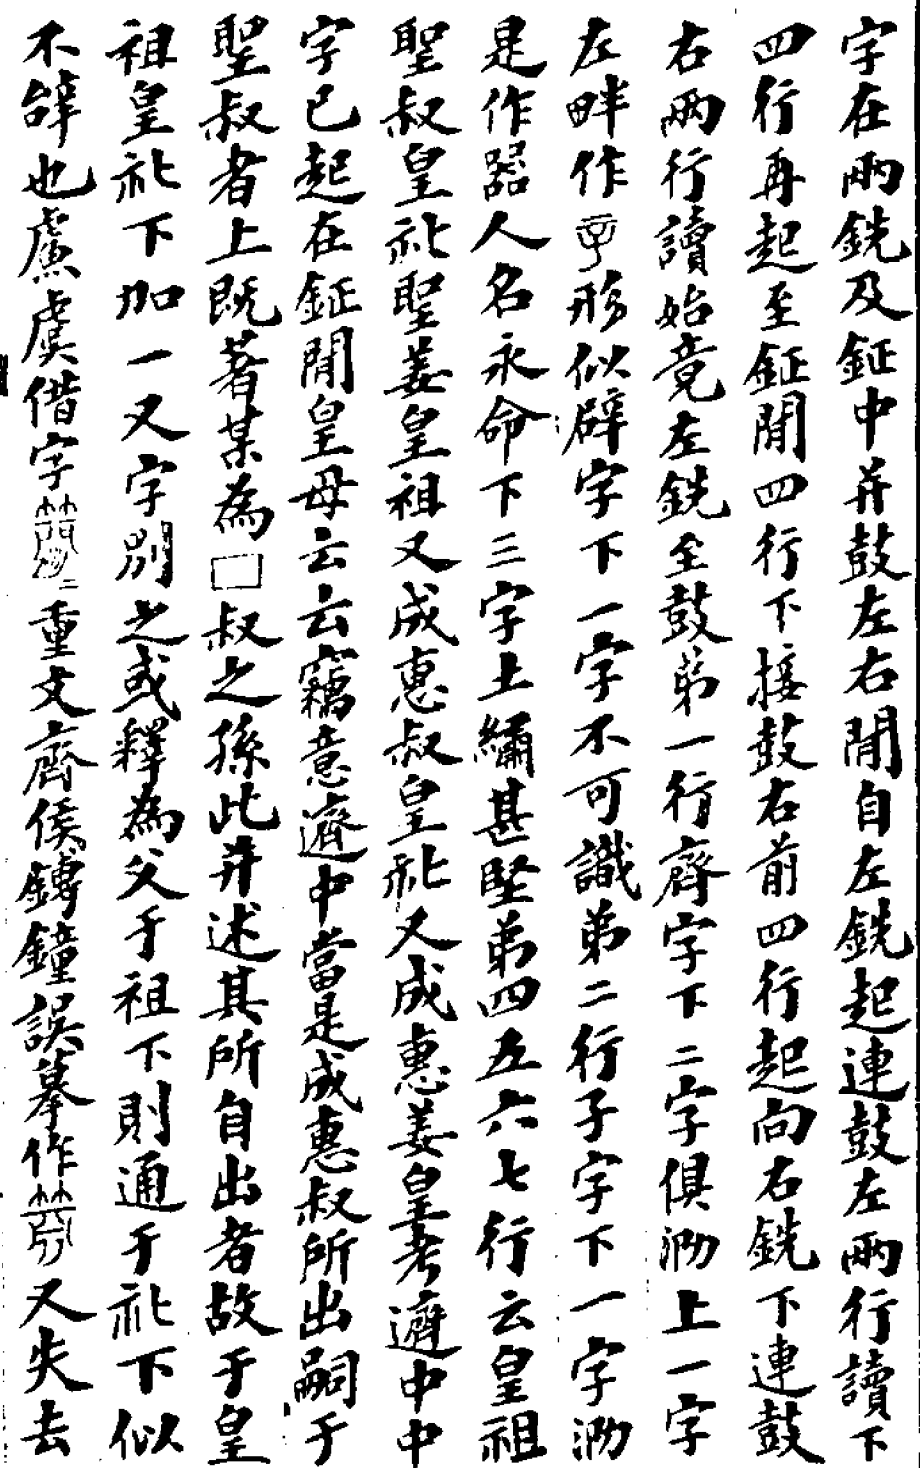 字在兩銑及鉦中并鼓左右閒自左銑起連鼓左兩行讀下
四行再起至鉦閒四行下接鼓右前四行起向右銑下連鼓
右兩行讀始竟左銑至鼓弟一行齊字下二字俱泐上一字
左畔作形似辟字下一字不可識弟二行子字下一字泐
是作器人名永命下三字土繡甚堅弟四五六七行云皇祖
聖叔皇祉聖姜皇祖又成惠叔皇祉又成惠姜皇考遹中中
字已起在鉦閒皇母云云竊意遹中當是成惠叔所出嗣于
聖叔者上既著某為□叔之孫此并述其所自出者故于皇
祖皇祉下加一又字別之或釋為父于祖下則通于祉下似
不辞也慮虡借字二重文齊侯鎛鐘誤摹作又失去